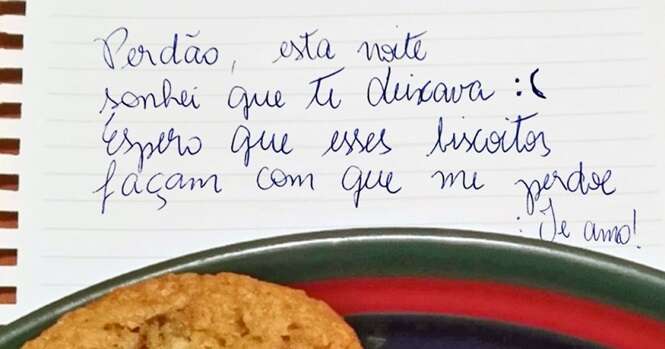 Perdão, esta noite
sonhei que te deixava :(
Espero que esses biscoitos
façam com que me perdoe
Te amo!